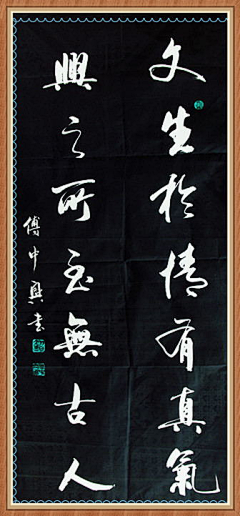 文生於情有真氣
興之所至無古人
傅中興書